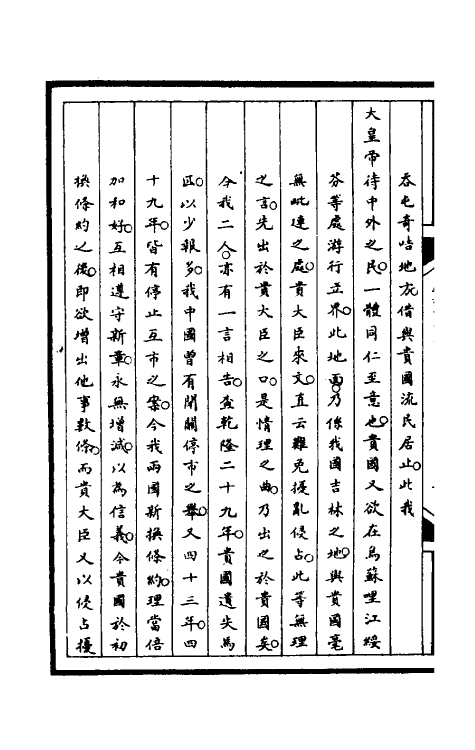 吞屯奇咭地方借與貴國流民居止。此我
大皇帝待中外之民。一體同仁至意也。貴國又欲在烏蘇哩江綏
芬等處游行立界。此地面。乃係我國吉林之地。與貴國毫
無毗連之處。貴大臣來文。直云難免擾亂侵占。此等無理
之言。先出於貴大臣之口。是情理之曲。乃出之於貴國矣。
今我二人。亦有一言相告。查乾隆二十九年。貴國遺失馬
匹。以少報多。我中國曾有閉關停市之舉。又四十三年。四
十九年。皆有停止互市之案。今我兩國新換條約。理當倍
加和好。互相遵守新章。永無增減。以為信義。今貴國於初
換條約之後。即欲增出他事數條。而貴大臣又以侵占擾